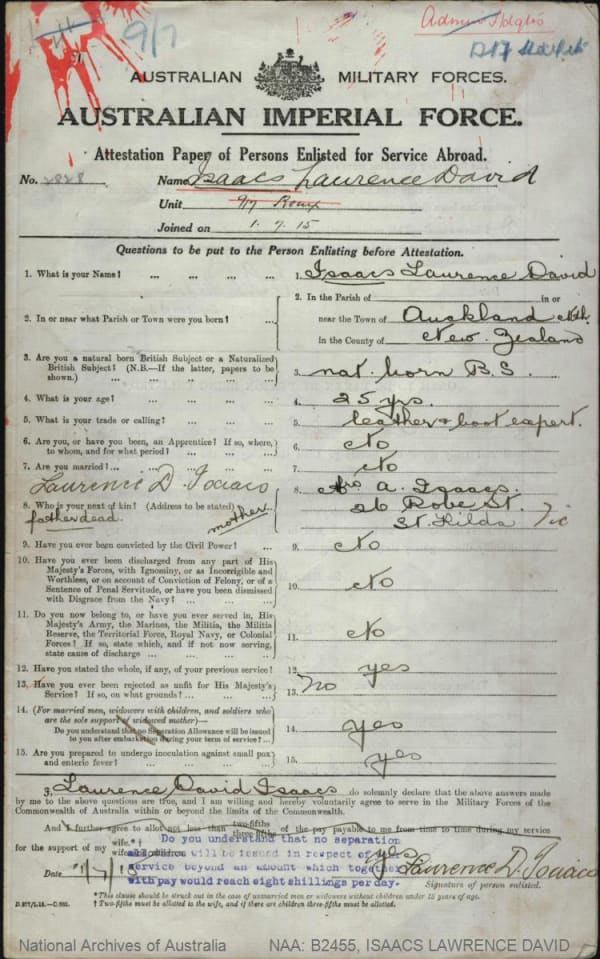 9/7
Admin Hdqrs
AUSTRALIAN MILITARY FORCES.
AUSTRALIAN IMPERIAL FORCE.
Attestation Paper of Persons Enlisted for Service Abroad.
No. 2828 Name Isaacs Laurence David
Unit
Joined on 1. 7. 15
Questions to be put to the Person Enlisting before Attestation.
1. What is your Name? ... ... ... ... 1. Isaacs Laurence David
2. In or near what Parish or Town were you born? ... 2. In the Parish of in or
near the Town of Auckland Nth.
in the County of New Zealand
3. Are you a natural born British Subject or a Naturalized
British Subject? (N.B.—If the latter, papers to be
shown.) ... ... ... ... 3. nat. born B.S.
4. What is your age? ... ... ... ... 4. 25 yrs.
5. What is your trade or calling? ... ... ... 5. leather & boot expert.
6. Are you, or have you been, an Apprentice? If so, where,
to whom, and for what period? ... ... ... 6. No
7. Are you married? ... ... ... ... 7. No
Laurence D. Isaacs
8. Who is your next of kin? (Address to be stated) 8. Mrs A. Isaacs.
26 Robe St.
St. Kilda Vic
father dead. mother
9. Have you ever been convicted by the Civil Power? ... 9. No
10. Have you ever been discharged from any part of His
Majesty's Forces, with Ignominy, or as Incorrigible and
Worthless, or on account of Conviction of Felony, or of a
Sentence of Penal Servitude, or have you been dismissed
with Disgrace from the Navy? ... ... ... 10. No
11. Do you now belong to, or have you ever served in, His
Majesty's Army, the Marines, the Militia, the Militia
Reserve, the Territorial Force, Royal Navy, or Colonial
Forces? If so, state which, and if not now serving,
state cause of discharge ... ... ... 11. No
12. Have you stated the whole, if any, of your previous service? 12. yes
13. Have you ever been rejected as unfit for His Majesty's
Service? If so, on what grounds? ... ... ... 13. No
14. (For married men, widowers with children, and soldiers who
are the sole support of widowed mother)—
Do you understand that no Separation Allowance will be issued
to you after embarkation during your term of service? ... 14. yes
15. Are you prepared to undergo inoculation against small pox
and enteric fever? ... ... ... ... 15. yes
I, Laurence David Isaacs do solemnly declare that the above answers made
by me to the above questions are true, and I am willing and hereby voluntarily agree to serve in the Military Forces of the
Commonwealth of Australia within or beyond the limits of the Commonwealth.
And I further agree to allot not less than two-fifths three-fifths of the pay payable to me from time to time during my service
for the support of my wife.*†
Do you understand that no separation
will be issued in respect of
service beyond an amount which together
with pay would reach eight shillings per day.
yes
Date 1/7/15 Laurence D. Isaacs
Signature of person enlisted.
*This clause should be struck out in the case of unmarried men or widowers without children under 18 years of age.
† Two-fifths must be allotted to the wife, and if there are children three-fifths must be allotted.
National Archives of Australia NAA: B2455, ISAACS LAWRENCE DAVID